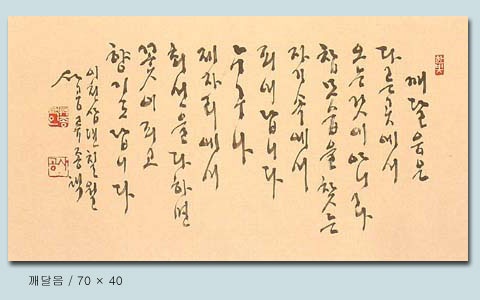 깨달음은
다른 곳에서
오는 것이 아니라
참모습을 찾는
자기 속에서
피어납니다
누구나
제자리에서
최선을 다하면
꽃이 피고
향기도 납니다
칠월
사공
깨달음 / 70 × 40